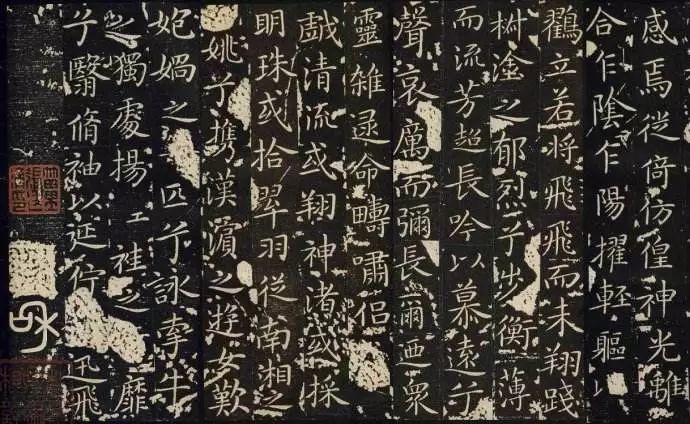 感焉徙倚仿偟神光離
合乍陰乍陽擢輕軀以
鸖立若將飛飛而未翔踐
椒塗之郁烈兮步衡薄
而流芳超長吟以慕遠兮
聲哀厲而彌長爾迺衆
靈雜遝命疇嘯侣
戲清流或翔神渚或採
明珠或拾翠羽從南湘之
姚兮携漢濱之遊女歎
匏媧之匹兮詠牽牛
之獨處揚袿之靡
兮翳脩袖以延佇迅飛